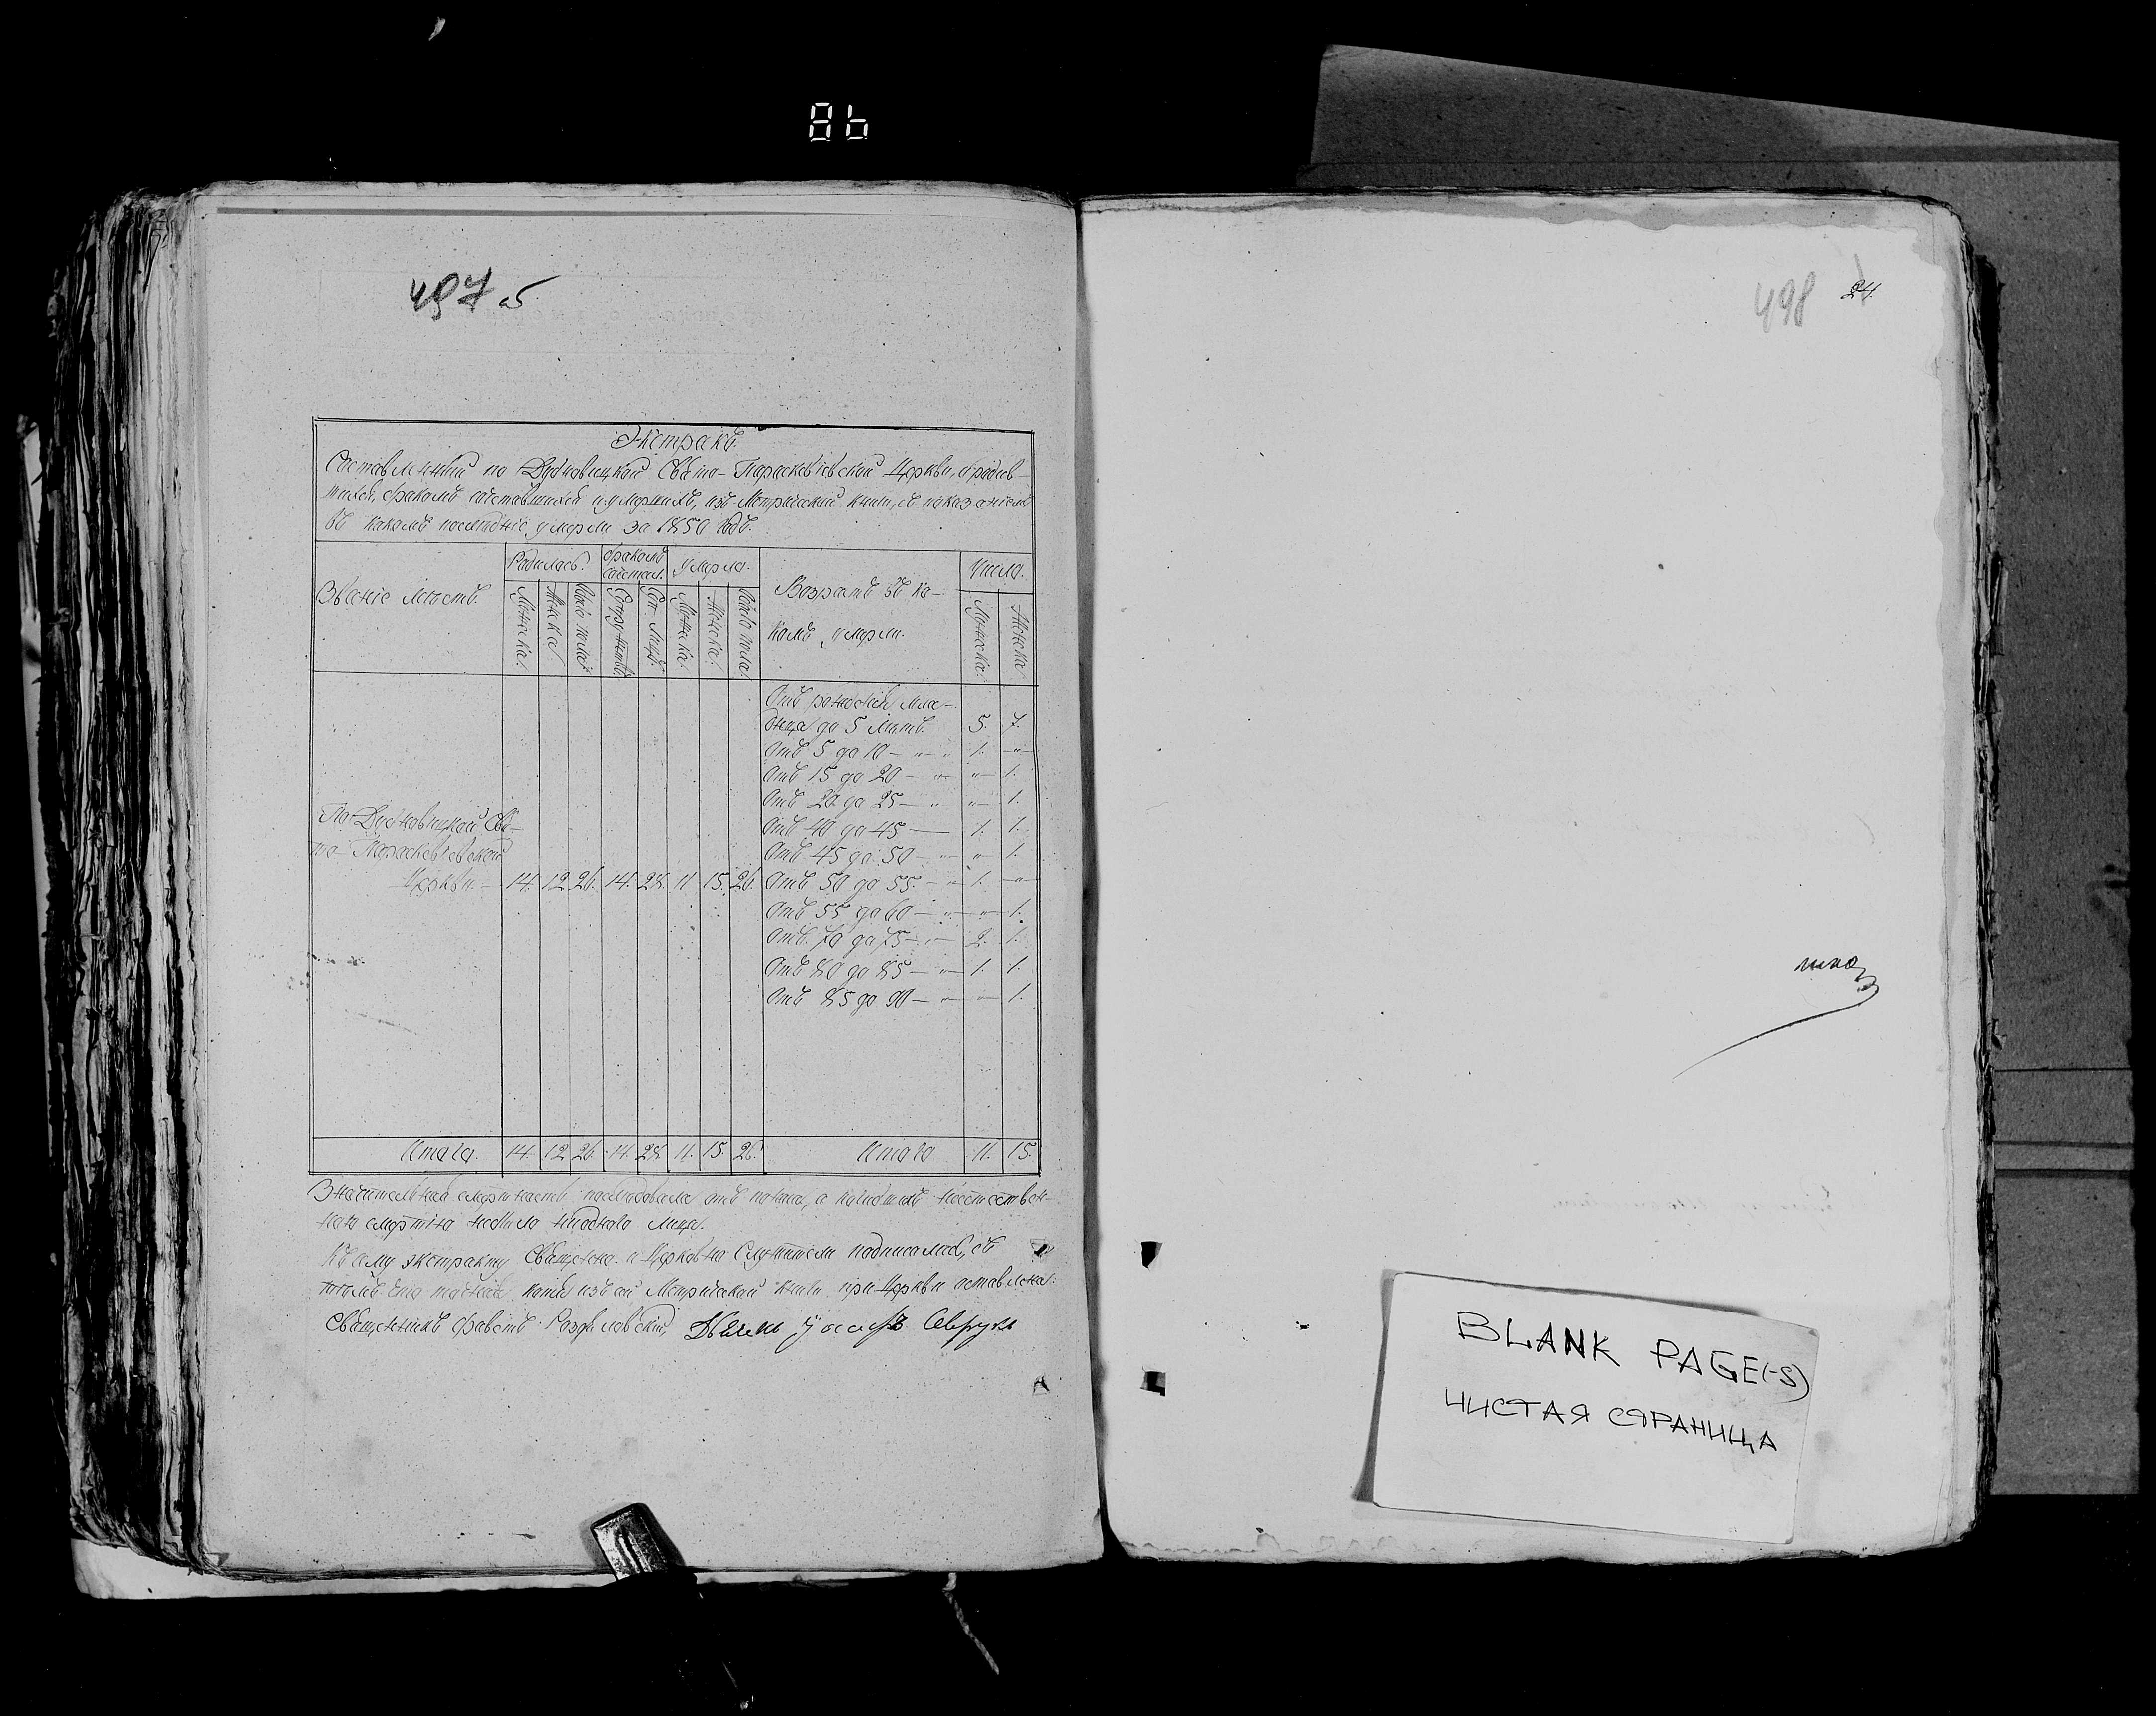 86
497 об
Экстрактъ.
Составленный по Дудковицкой Свято-Параскевіевской Церкви, о родив-
шихся, бракомъ сочетавшихся и умершихъ, изъ Метрической книги, съ показаніемъ
въ какомъ последніе умерли за 1850 годъ.
Званіе местъ.
Родилось.
бракомъ сочетал.
умерло.
Возрастъ въ ка-
комъ умерли.
Число.
Мужеска.
Женска.
Обоего пола.
Супружествъ
Лицъ.
Мужеска.
Женска.
Обоего пола
Мужеска.
Женска
Отъ рожденія мла-
денца до 5 летъ. 5. 7.
Отъ 5 до 10 — „ 1. —„—
Отъ 15 до 20 — „ „— 1.
Отъ 20 до 25 — „ „— 1.
Отъ 40 до 45 — 1. 1.
Отъ 45 до 50 — „ „— 1.
По Свя-
то-Параскевіевской
Церкви. — 14. 12. 26. 14. 28. 11. 15. 26. Отъ 50 до 55. — „ 1. —„—
Отъ 55 до 60 — „ „— 1.
Отъ 70 до 75 — „ 2. 1.
Отъ 80 до 85 — „ 1. 1.
Отъ 85 до 90 — „ „— 1.
Итого. 14. 12. 26. 14. 28. 11. 15. 26. Итого 11. 15.
Значительная смертность последовала отъ а неестествен-
ною смертію небыло ниодного лица.
Къ сему экстракту Священно и Церковно Служители подписались, съ
темъ что точная копія изъ сей Метрической книги при Церкви оставлена.
Священникъ
498 24.
BLANK PAGE(-S)
ЧИСТАЯ СТРАНИЦА